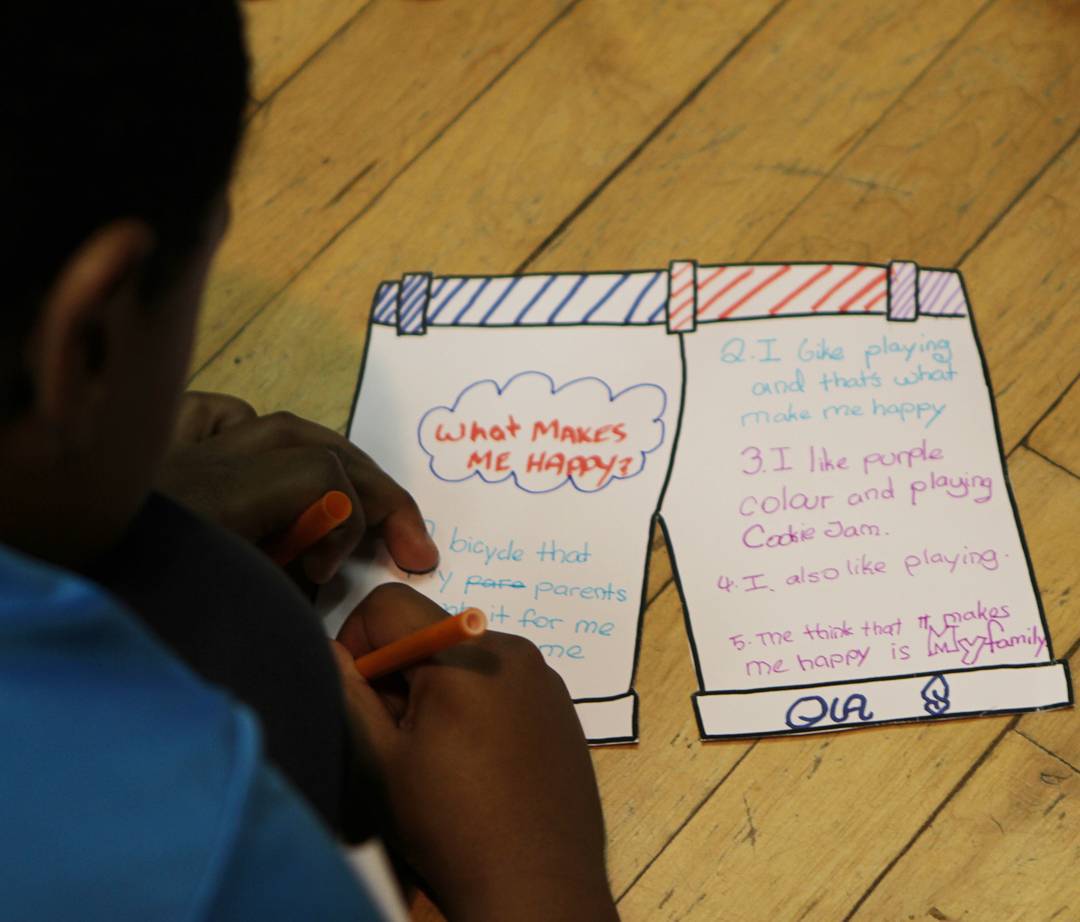 What MAKES
ME HAPPY?
bicycle that
y para parents
it for me
me
2. I like playing
and that's what
make me happy
3. I like purple
colour and playing
Cookie Jam.
4. I also like playing.
5. The think that it makes
me happy is My family